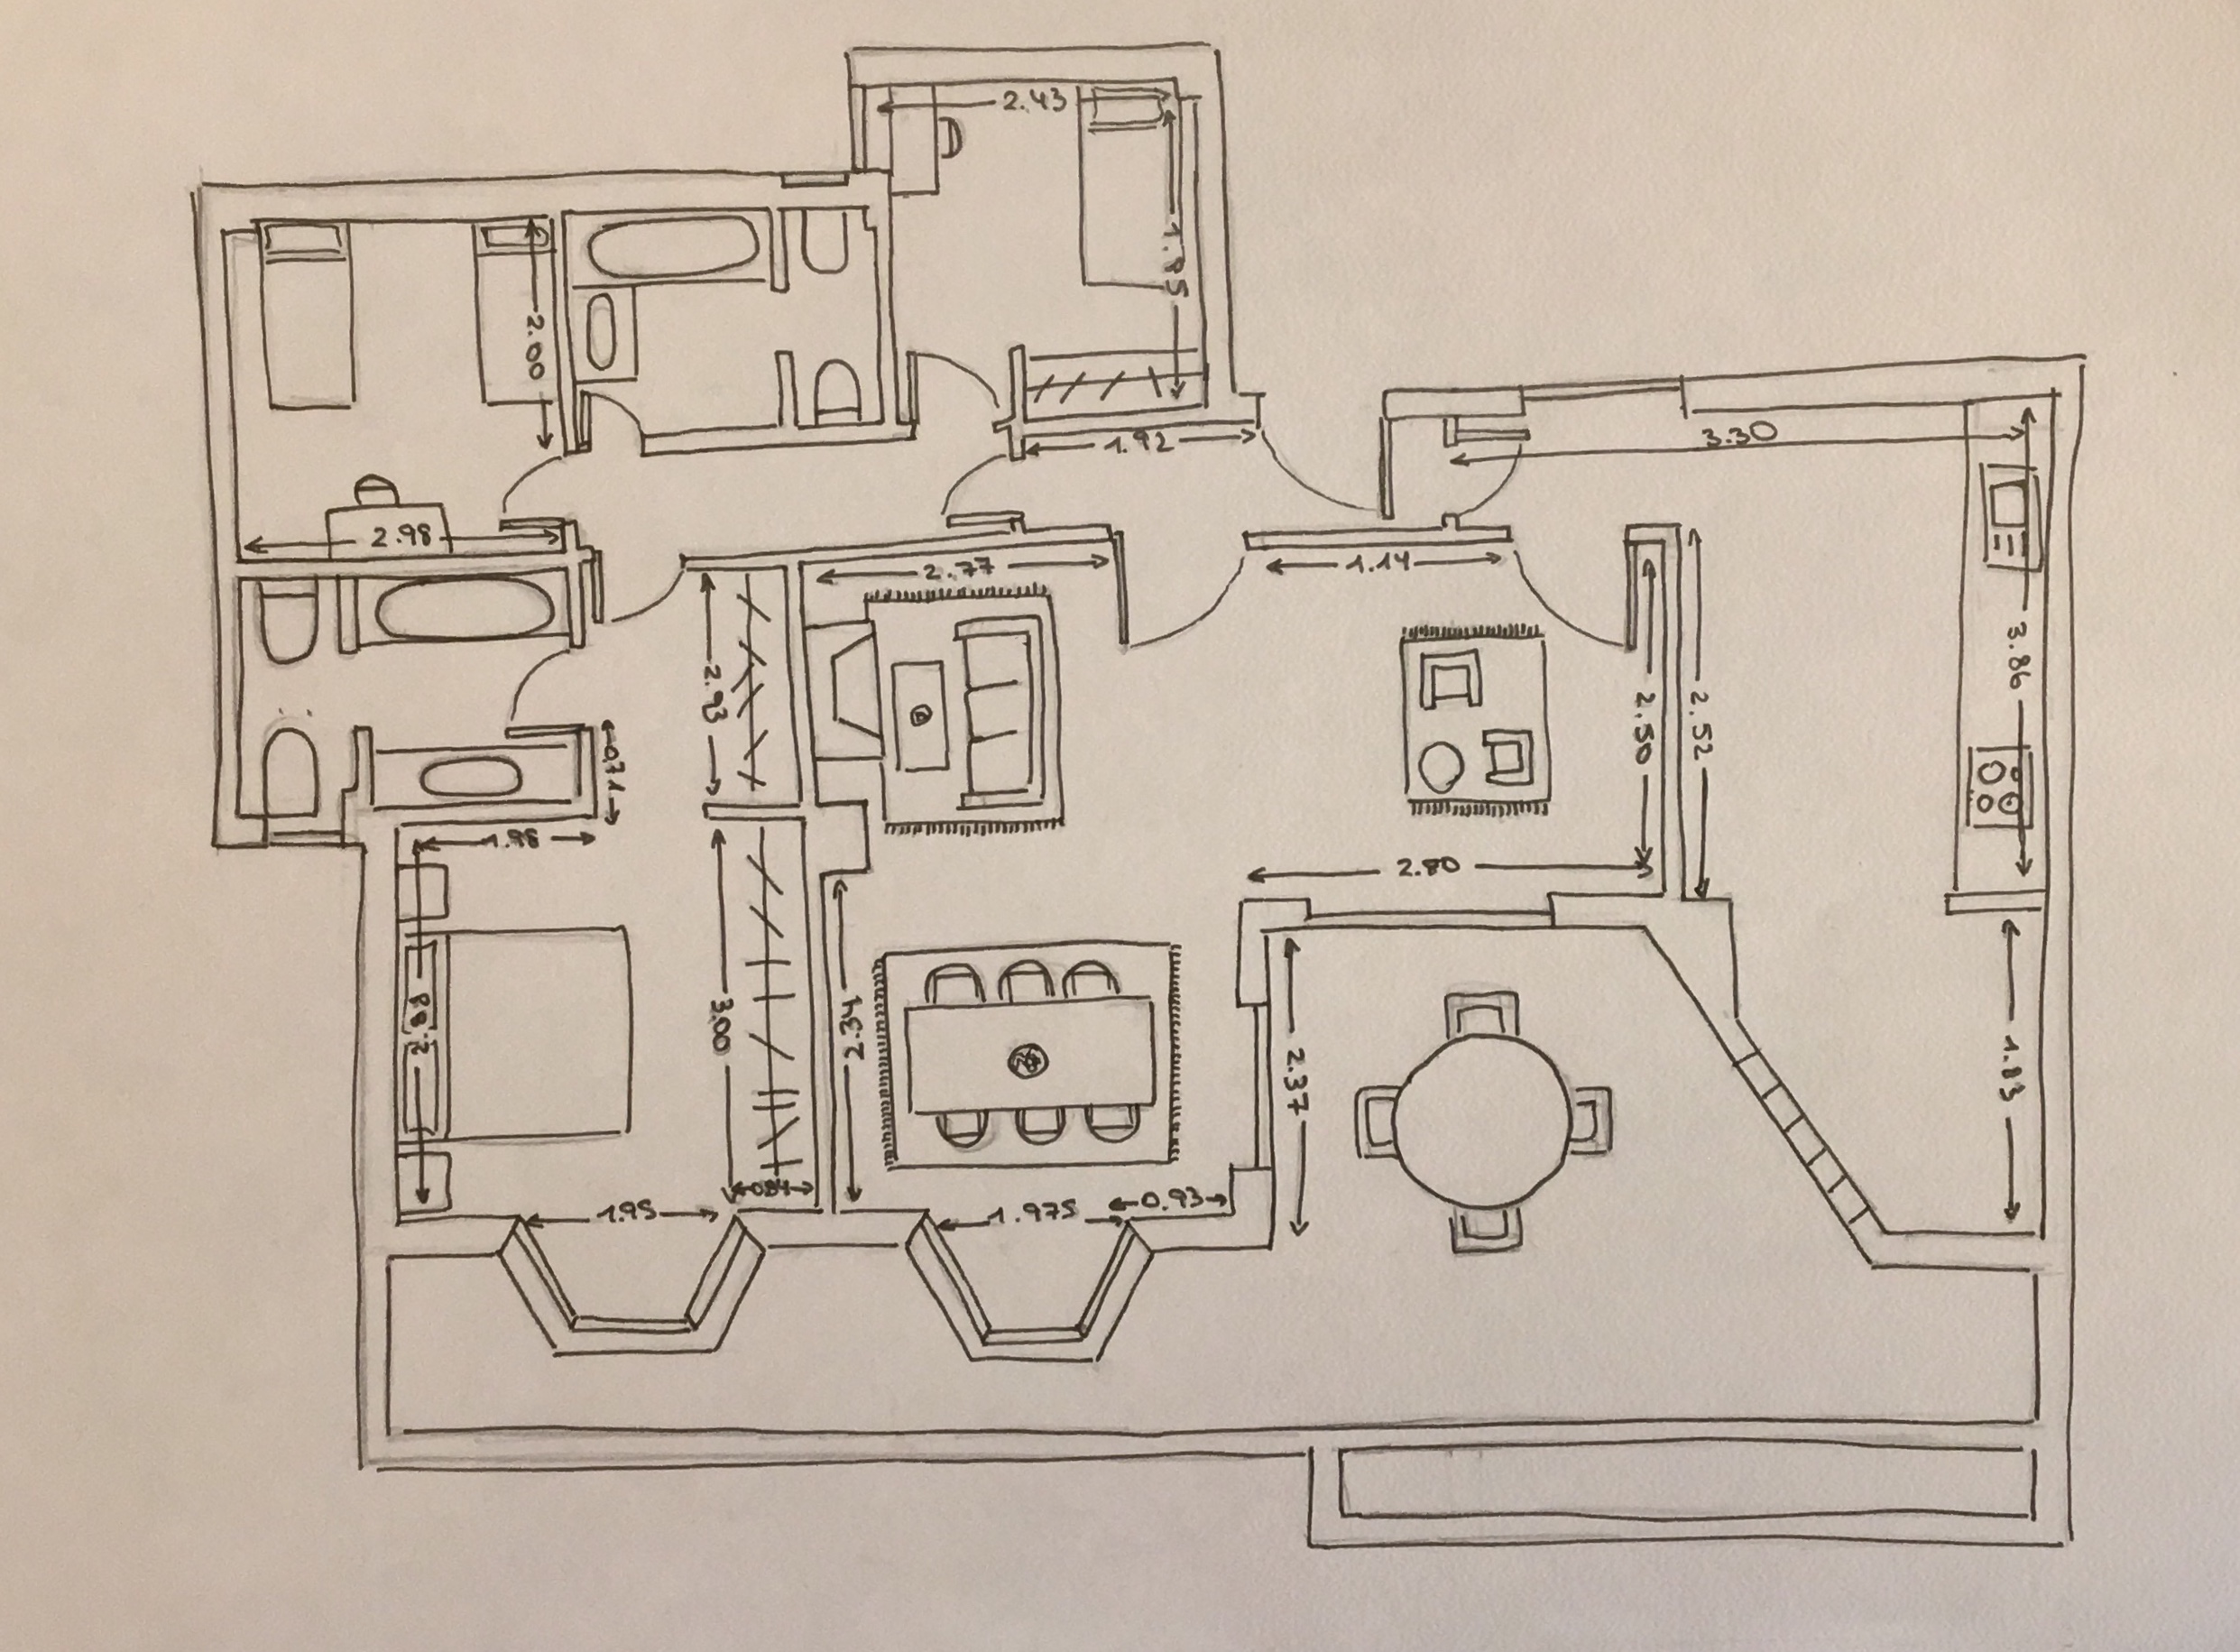 2.43
1.95
2.00
1.92
3.30
2.98
2.77
1.14
2.93
2.50
2.52
3.86
0.71
1.98
2.80
2.88
3.00
2.34
2.37
1.13
1.95
0.84
1.975
0.93